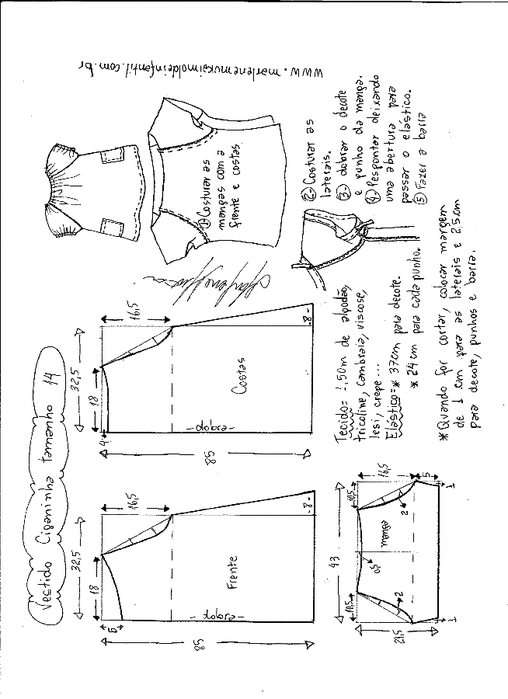 Vestido Ciganinha tamanho 14
32,5
18
16,5
5
85
Frente
dobra
8
32,5
18
16,5
4
85
Costas
dobra
8
① Costurar as
mangas com a
frente e costas
www.marlenemukaimoldeinfantil.com.br
② Costurar as
laterais.
③ dobrar o decote
e punho da manga.
④ Pespontar deixando
uma abertura para
passar o elástico.
⑤ Fazer a barra
Tecido = 1,50m de algodão,
tricoline, cambraia, viscose,
lesi, crepe...
Elástico = * 37cm para decote.
* 24cm para cada punho.
* Quando for cortar, colocar margem
de 1 cm para as laterais e 2,5cm
para decote, punhos e barra.
43
10,5
16,5
5
2
manga
11,5
2
21,5
1
1